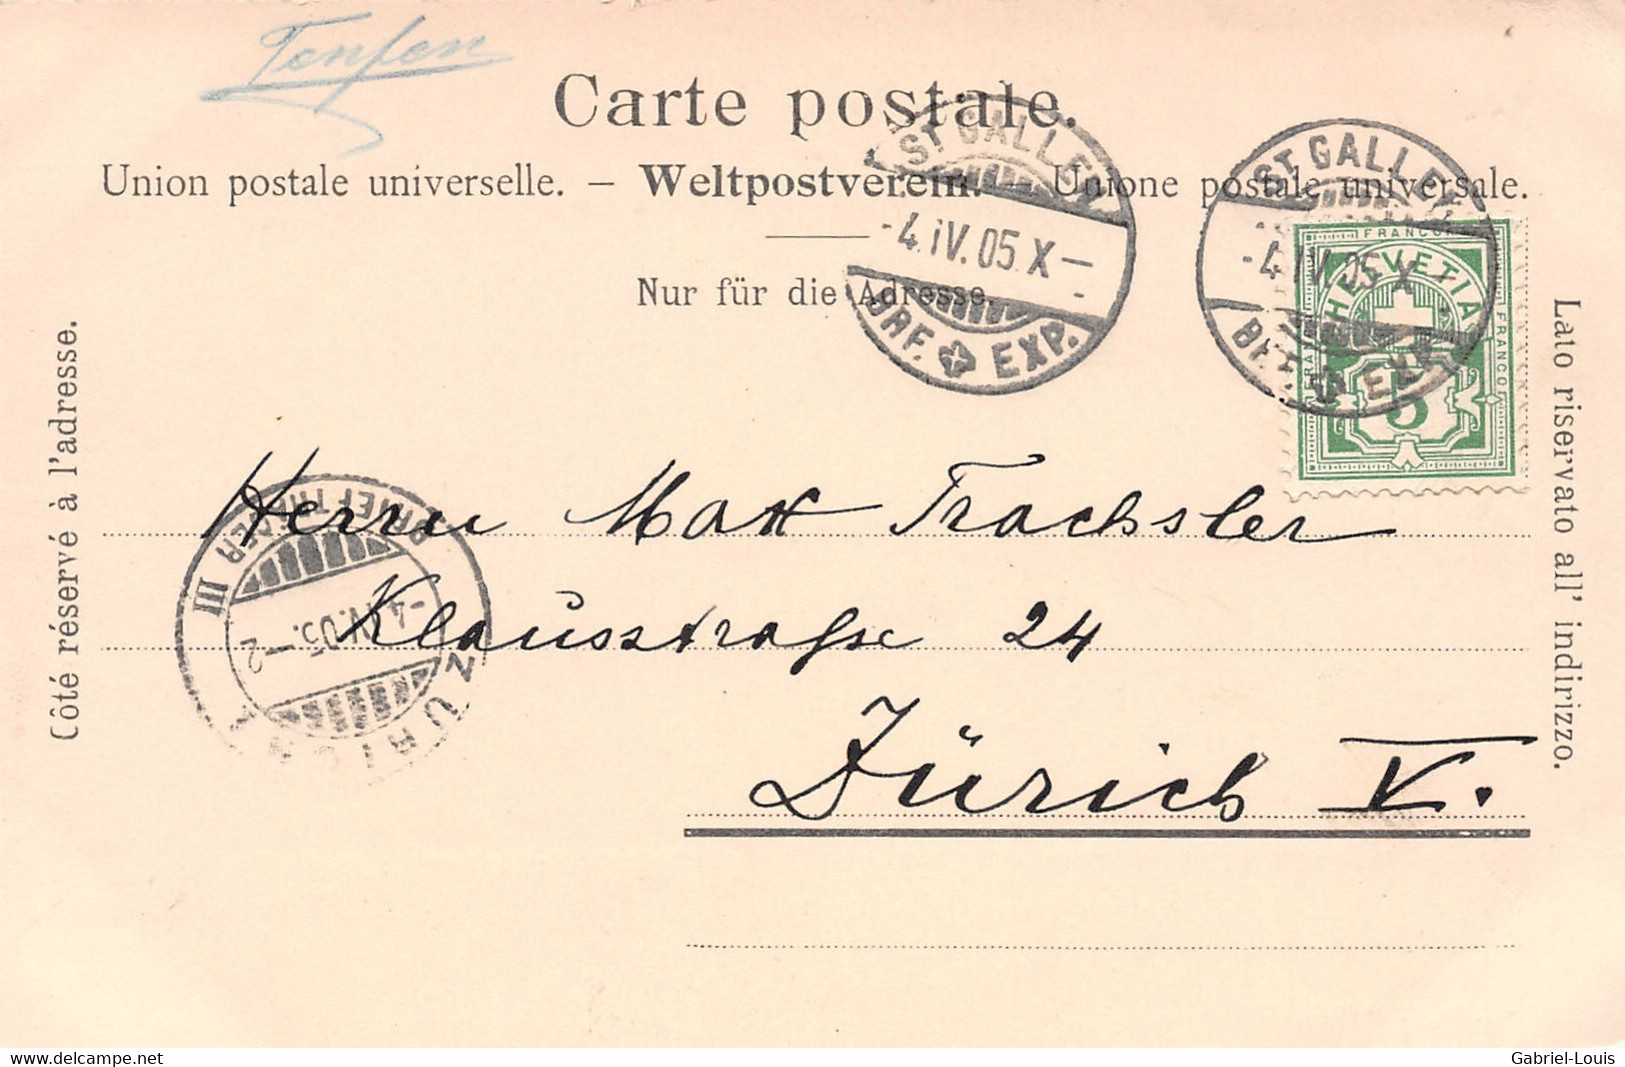 Teufen
Carte postale.
Union postale universelle. — Weltpostverein. — Unione postale universale.
Nur für die Adresse.
ST. GALLEN
-4.IV.05.X—
BRF. EXP.
ST. GALLEN
-4.IV.05.X-
BRF. EXP.
FRANCO
HELVETIA
FRANCO
FRANCO
5
Côté réservé à l'adresse.
Lato riservato all' indirizzo.
Herrn Max Trachsler
Klausstraße 24
Zürich V.
BRIEFTRÄGER III
-4.IV.05.—2
ZÜRICH
delcampe.net
Gabriel-Louis